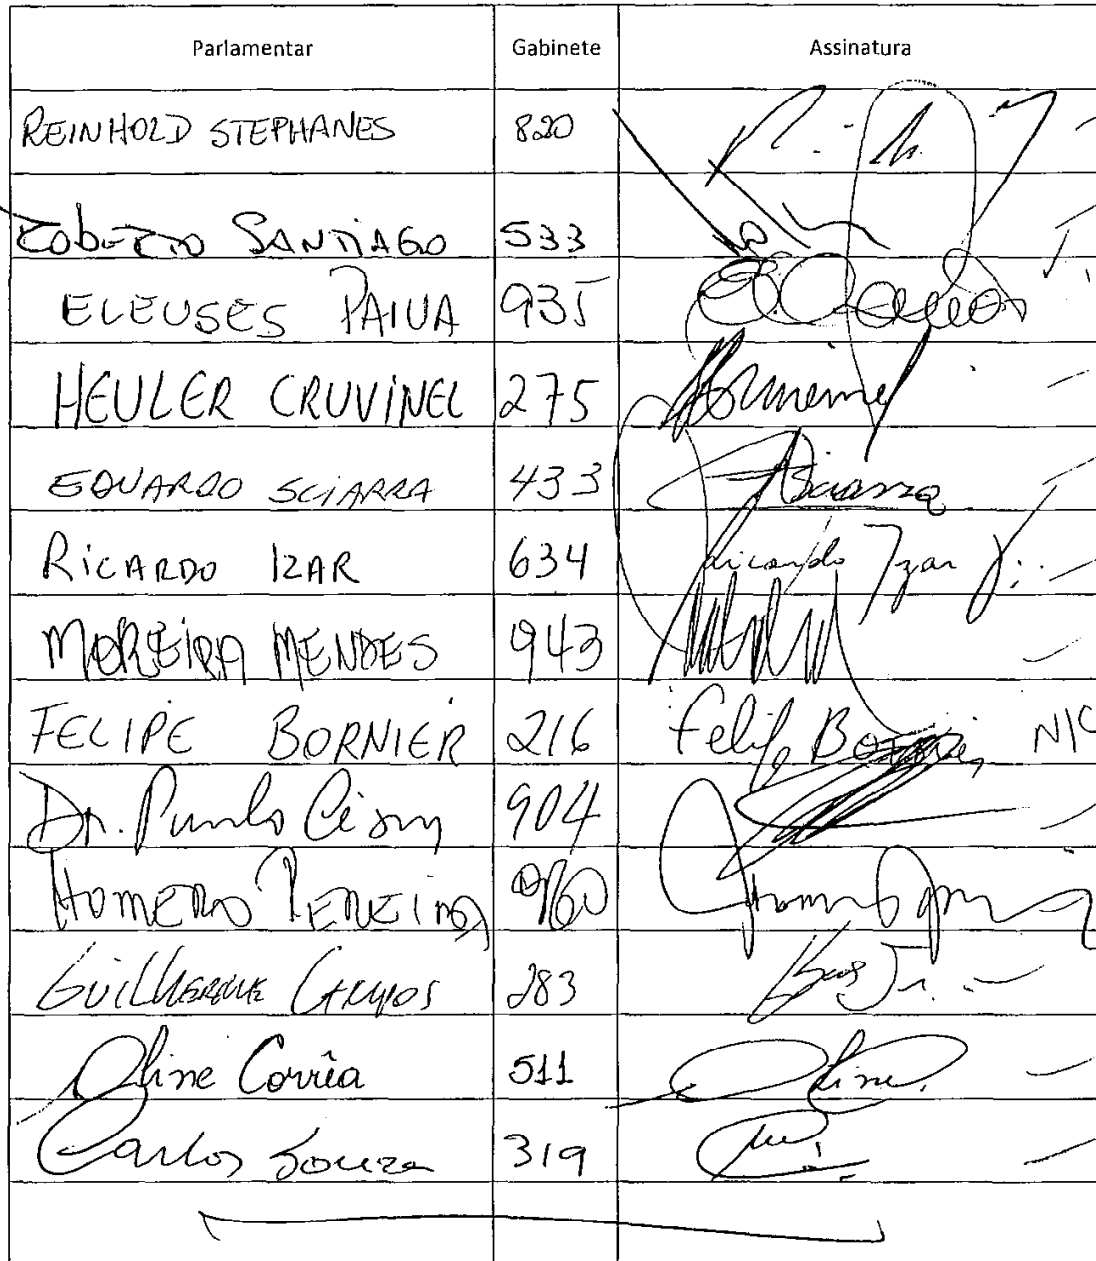 Parlamentar Gabinete Assinatura
REINHOLD STEPHANES 820
Roberto SANTIAGO 533
ELEUSES PAIVA 935
HEULER CRUVINEL 275
EDUARDO SCIARRA 433 Sciarra
RICARDO IZAR 634 Ricardo Izar Jr.
MOREIRA MENDES 943
FELIPE BORNIER 216 Felipe Bornier
Dr. Paulo César 904
HOMERO PEREIRA 960
GUILHERME CAMPOS 283
Aline Corrêa 511 Aline
Carlos Souza 319